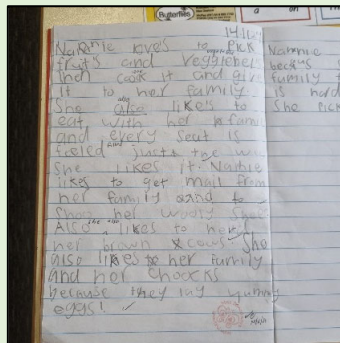 Butterflies
a
on
14.11.
Nannie loves to Pick
fruits and veggiebels
then cook it and give
it to her family.
She also likes to
eat with her family
and every seat is
just the
She likes it. Nannie
likes to get mail from
her family and to
her wooly
Also likes to
her brown cows. She
also likes her family
and her choocks
because they lay yummy
eggs!
Nannie
family
is
She Pick